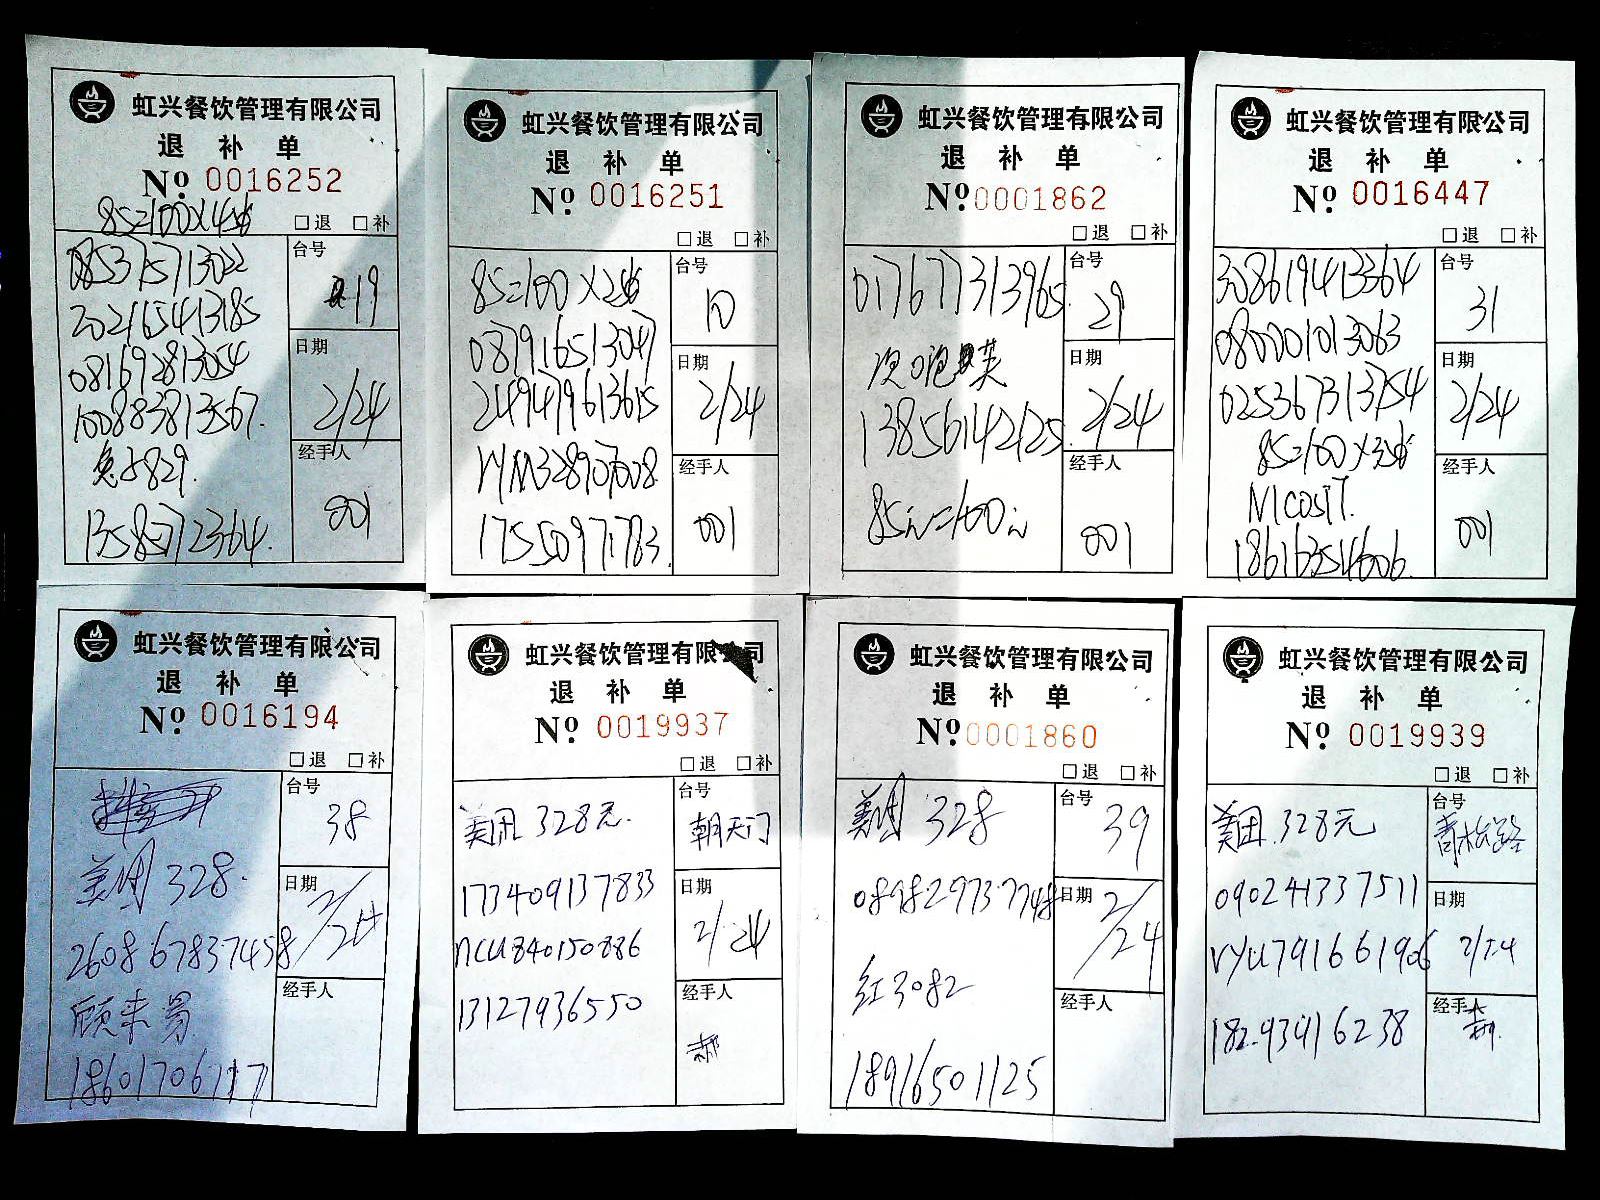 虹兴餐饮管理有限公司
退 补 单
No. 0016252
□退 □补
台号
19
202165413185
081692813054
100883813567.
日期
2/24
经手人
001
13585772364.
虹兴餐饮管理有限公司
退 补 单
No. 0016251
□退 □补
85=100×2
台号
10
087916513047
249479613615
日期
2/24
经手人
17550971783.
001
虹兴餐饮管理有限公司
退 补 单
No. 0001862
□退 □补
017677313965
台号
29
日期
2/24
13856142125
经手人
85元=100元
001
虹兴餐饮管理有限公司
退 补 单
No. 0016447
□退 □补
308619413364
台号
31
080001013063
日期
025367313754
2/24
85=100×3
经手人
NICOSIT.
001
18616354606.
虹兴餐饮管理有限公司
退 补 单
No. 0016194
□退 □补
台号
38
美团 328.
日期
2/24
260867837458
经手人
顾来勇
18601706117
虹兴餐饮管理有限公司
退 补 单
No. 0019937
□退 □补
美团 328元.
台号
朝天门
173409137833
日期
2/24
ncu840150886
经手人
13127936550
郝
虹兴餐饮管理有限公司
退 补 单
No. 0001860
□退 □补
美团 328
台号
39
089829737748
日期
2/24
红3082
经手人
18916501125
虹兴餐饮管理有限公司
退 补 单
No. 0019939
□退 □补
美团.328元
台号
青松路
090241337511
日期
2/24
vyu791661906
经手人
18293416238